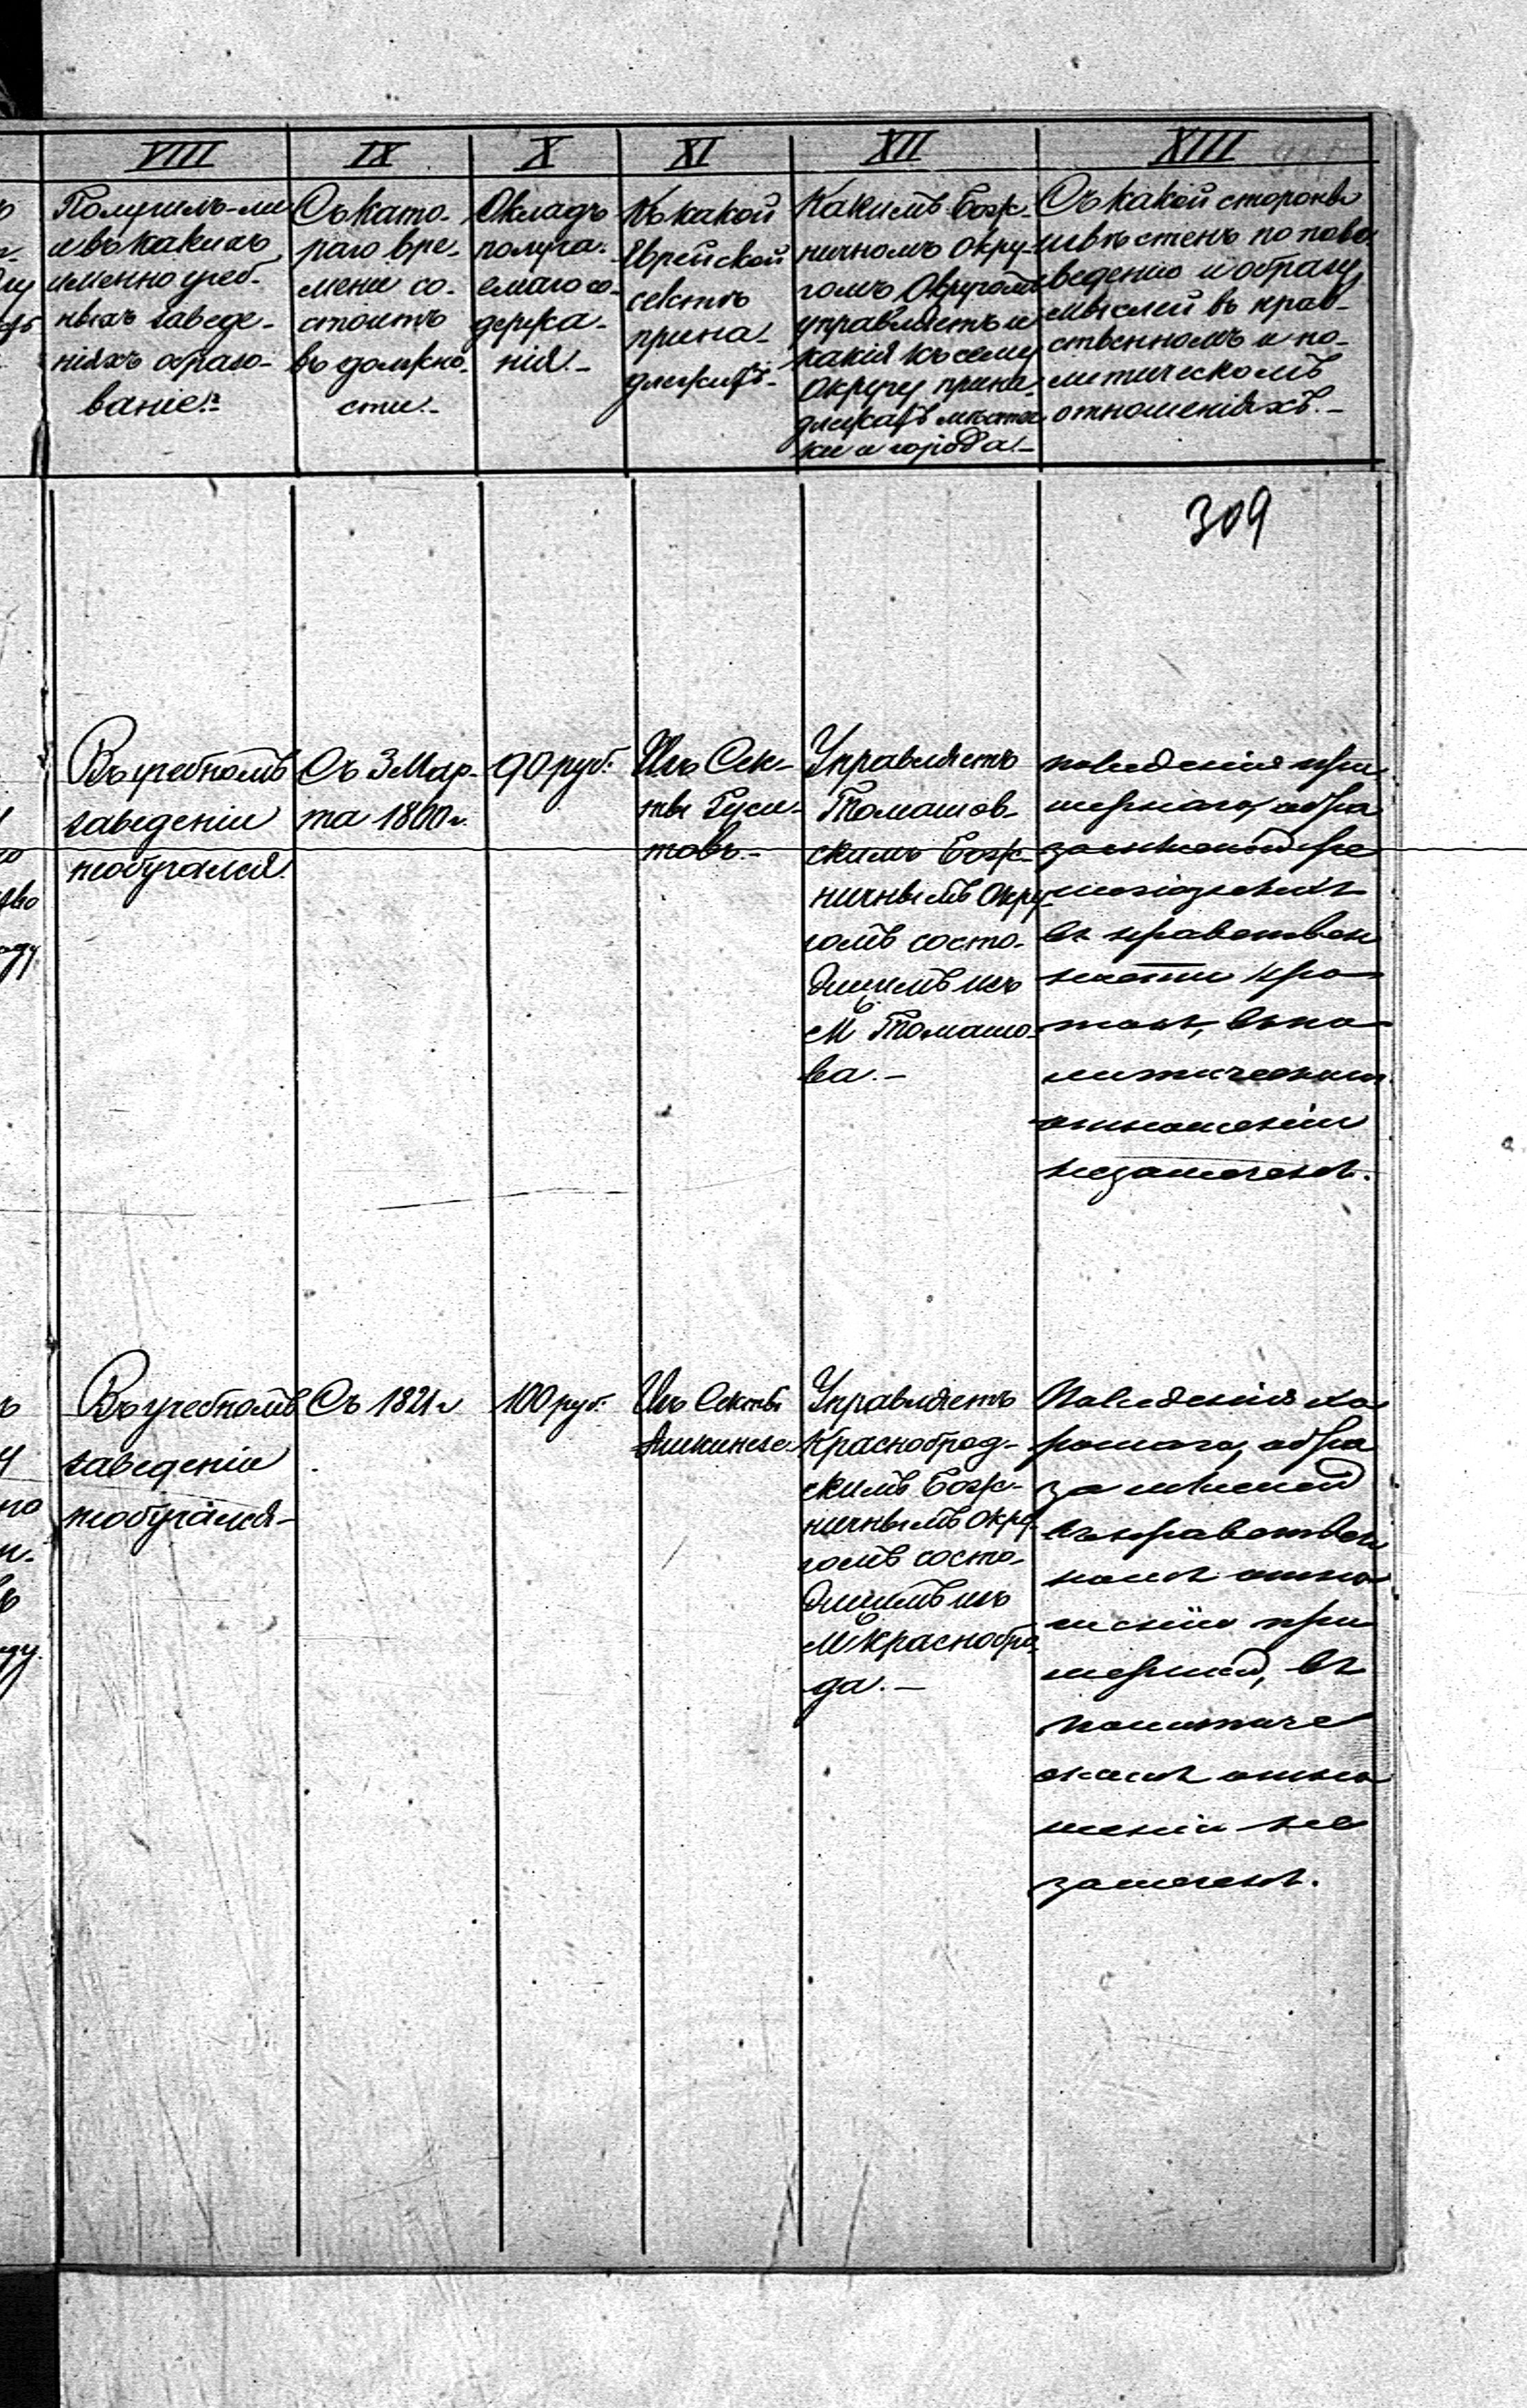 VIII
Получилъ-ли
и въ какихъ
именно учеб-
ныхъ заведе-
ніяхъ образо-
ваніе.-
IX
Съ като-
раго вре-
мени со-
стоитъ
въ должно-
сти.-
X
Окладъ
получа-
емаго со-
держа-
нія.-
XI
Къ какой
Еврейской
сектѣ
прина-
длежитъ-
XII
Какимъ Бож-
ничномъ окру-
гомъ Округомъ
управляетъ и
какія къ сему
округу прина-
длежатъ мѣстеч-
ки и города.-
XIII
Съ какой стороны
извѣстенъ по пове-
ведению и образу
мыслей въ нрав-
ственномъ и по-
литическомъ
отношеніяхъ.-
309
Въ учебномъ
заведеніи
необучался.
Съ 3 Мар-
та 1860 г.
90 руб.
Изъ Сек-
ты Гуси-
товъ.-
Управляетъ
Томашов-
скимъ Бож-
ничнымъ Окру-
гомъ состо-
ящимъ изъ
М. Томашо-
ва.-
поведенія при-
мернаго, обра
за мыслей ре
лигіозныхъ
въ нравствен
ности кро
токъ, въ по
литическом
отношеніи
незамеченъ.
Въ учебномъ
заведеніи
необучался-
Съ 1821 г
100 руб.
Изъ Секты
Ашкинезе.
Управляетъ
Красноброд-
скимъ Бож-
ничнымъ Окру-
гомъ состо-
ящимъ изъ
М. Краснобро-
да.-
Поведенія хо
рошаго, обра
за мыслей
въ нравствен
номъ отно
шеніи при
мерный, въ
политиче
скомъ отно
шеніи не
замеченъ.